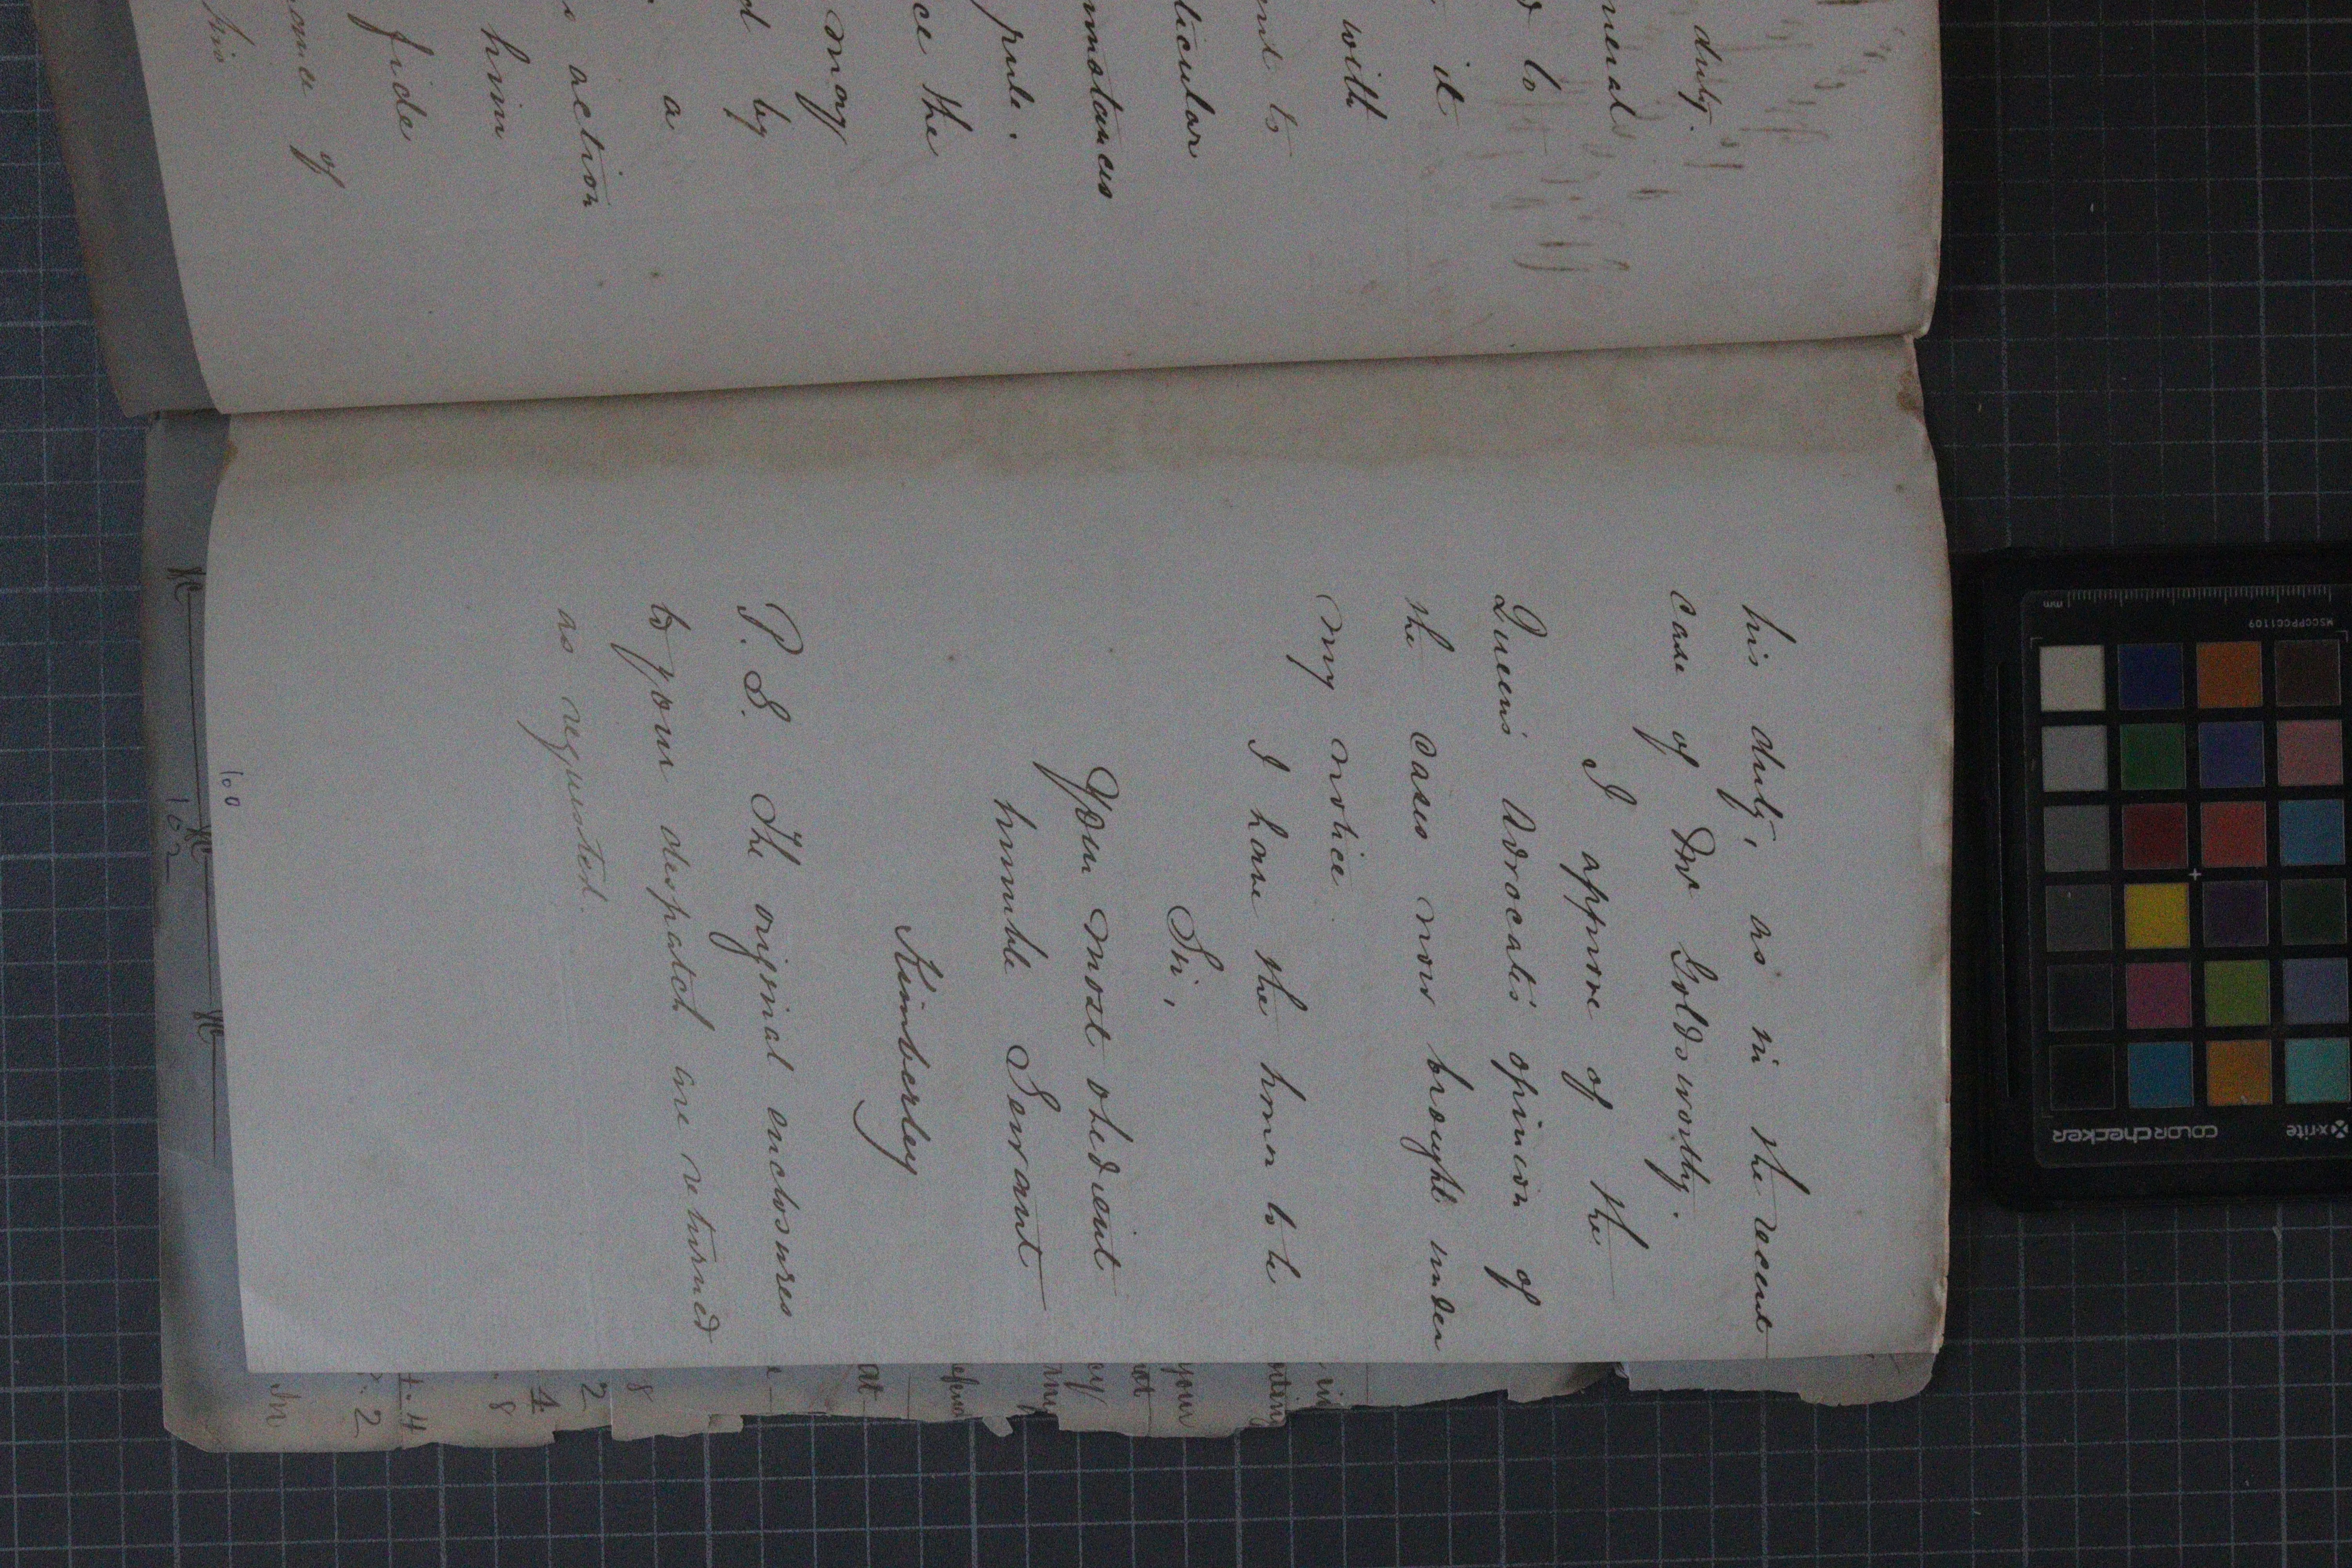 duty.
neral
d to
it
with
nt to
ticular
mstances
pule.
ce the
may
d by
a
action
him
fide
ance of
his
his duty, as in the recent
case of Mr Goldsworthy.
I approve of the
Queen's Advocate's opinion of
the cases now brought under
my notice
I have the honor to be
Sir,
Your most obedient
humble Servant
Kimberley
P.S. The original enclosures
to your despatch are returned
as requested.
100
102
in
your
not
at
8
2
4
.8
+.4
.2
In